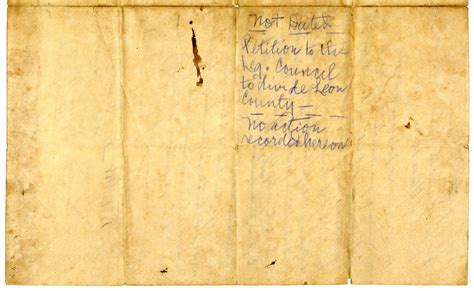 Not Dated
Petition to the
Leg. Council
to divide Leon
County —
No action
recorded hereon